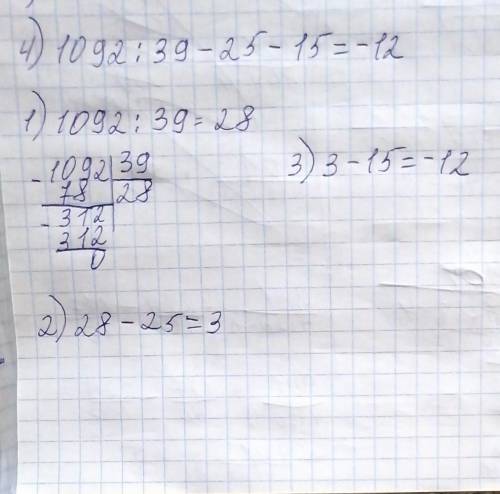 4) 1092 : 39 - 25 - 15 = -12
1) 1092 : 39 = 28
- 1092 | 39
78 | 28
- 312
312
0
3) 3 - 15 = -12
2) 28 - 25 = 3